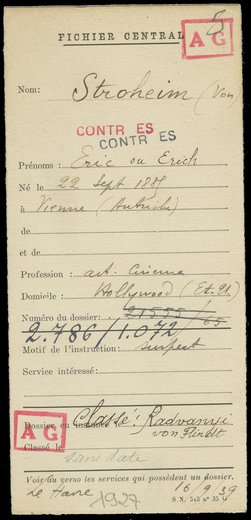 5
FICHIER CENTRAL
AG
Nom: Stroheim (Von)
CONTR ES
CONTR ES
Prénoms: Eric ou Erich
Né le 22 Sept 1885
à Vienne (Autriche)
de
et de
Profession: act. Cinema
Domicile: Hollywood (Et. U.)
Numéro du dossier: 21555/65
2.786/1.072
Motif de l'instruction: suspect
Service intéressé:
Classé: Radvanyi
Dossier en instance de
von Flindt
AG
Classé le
sans date
Voir au verso les services qui possèdent un dossier.
Le Havre
1927
16/9/39
S.N. 545 n° 35 G